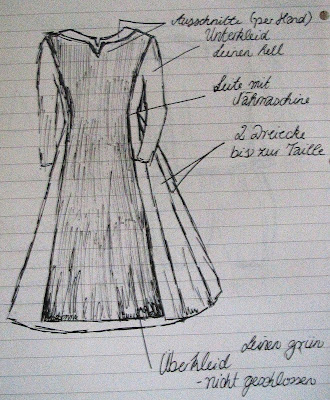 Ausschnitte (per Hand)
Unterkleid
Leinen hell
Seite mit
Nähmaschine
2 Dreiecke
bis zur Taille
Leinen grün
Überkleid
- nicht geschlossen